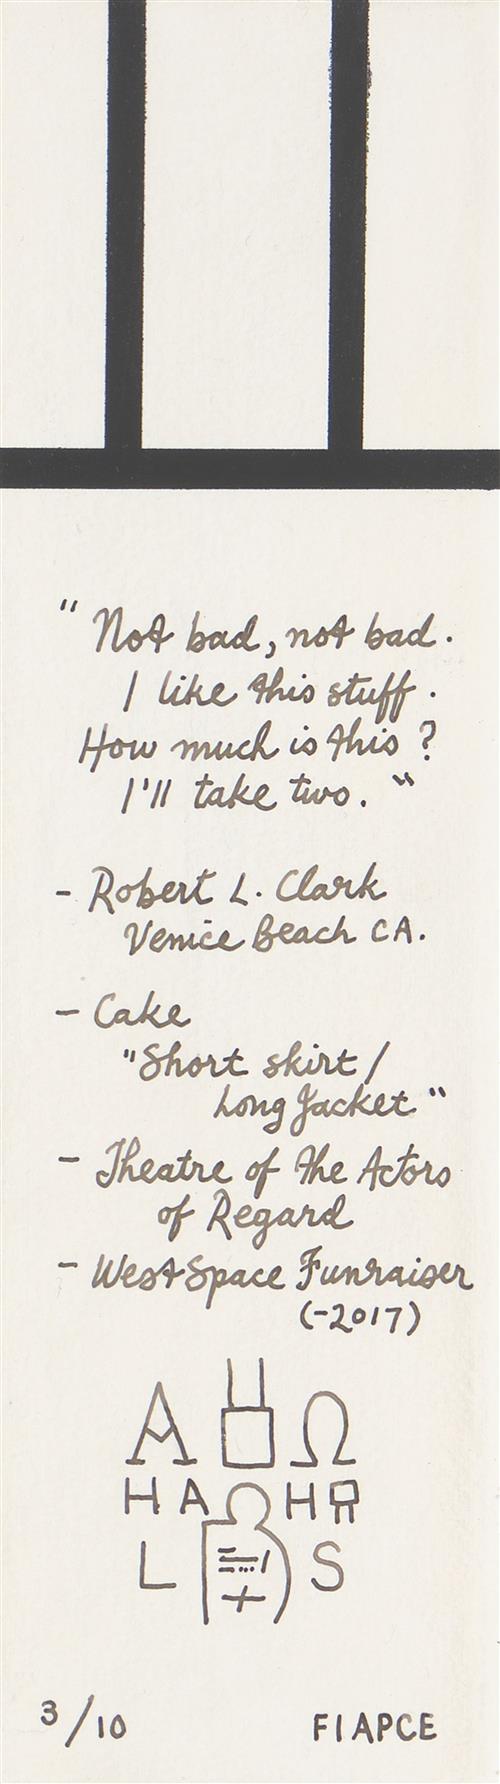 " Not bad, not bad.
I like this stuff.
How much is this ?
I'll take two. "
- Robert L. Clark
Venice Beach CA.
- Cake
"Short skirt /
Long Jacket "
- Theatre of the Actors
of Regard
- West Space Funraiser
(-2017)
A Ω
H A H
L S
3/10 FIAPCE